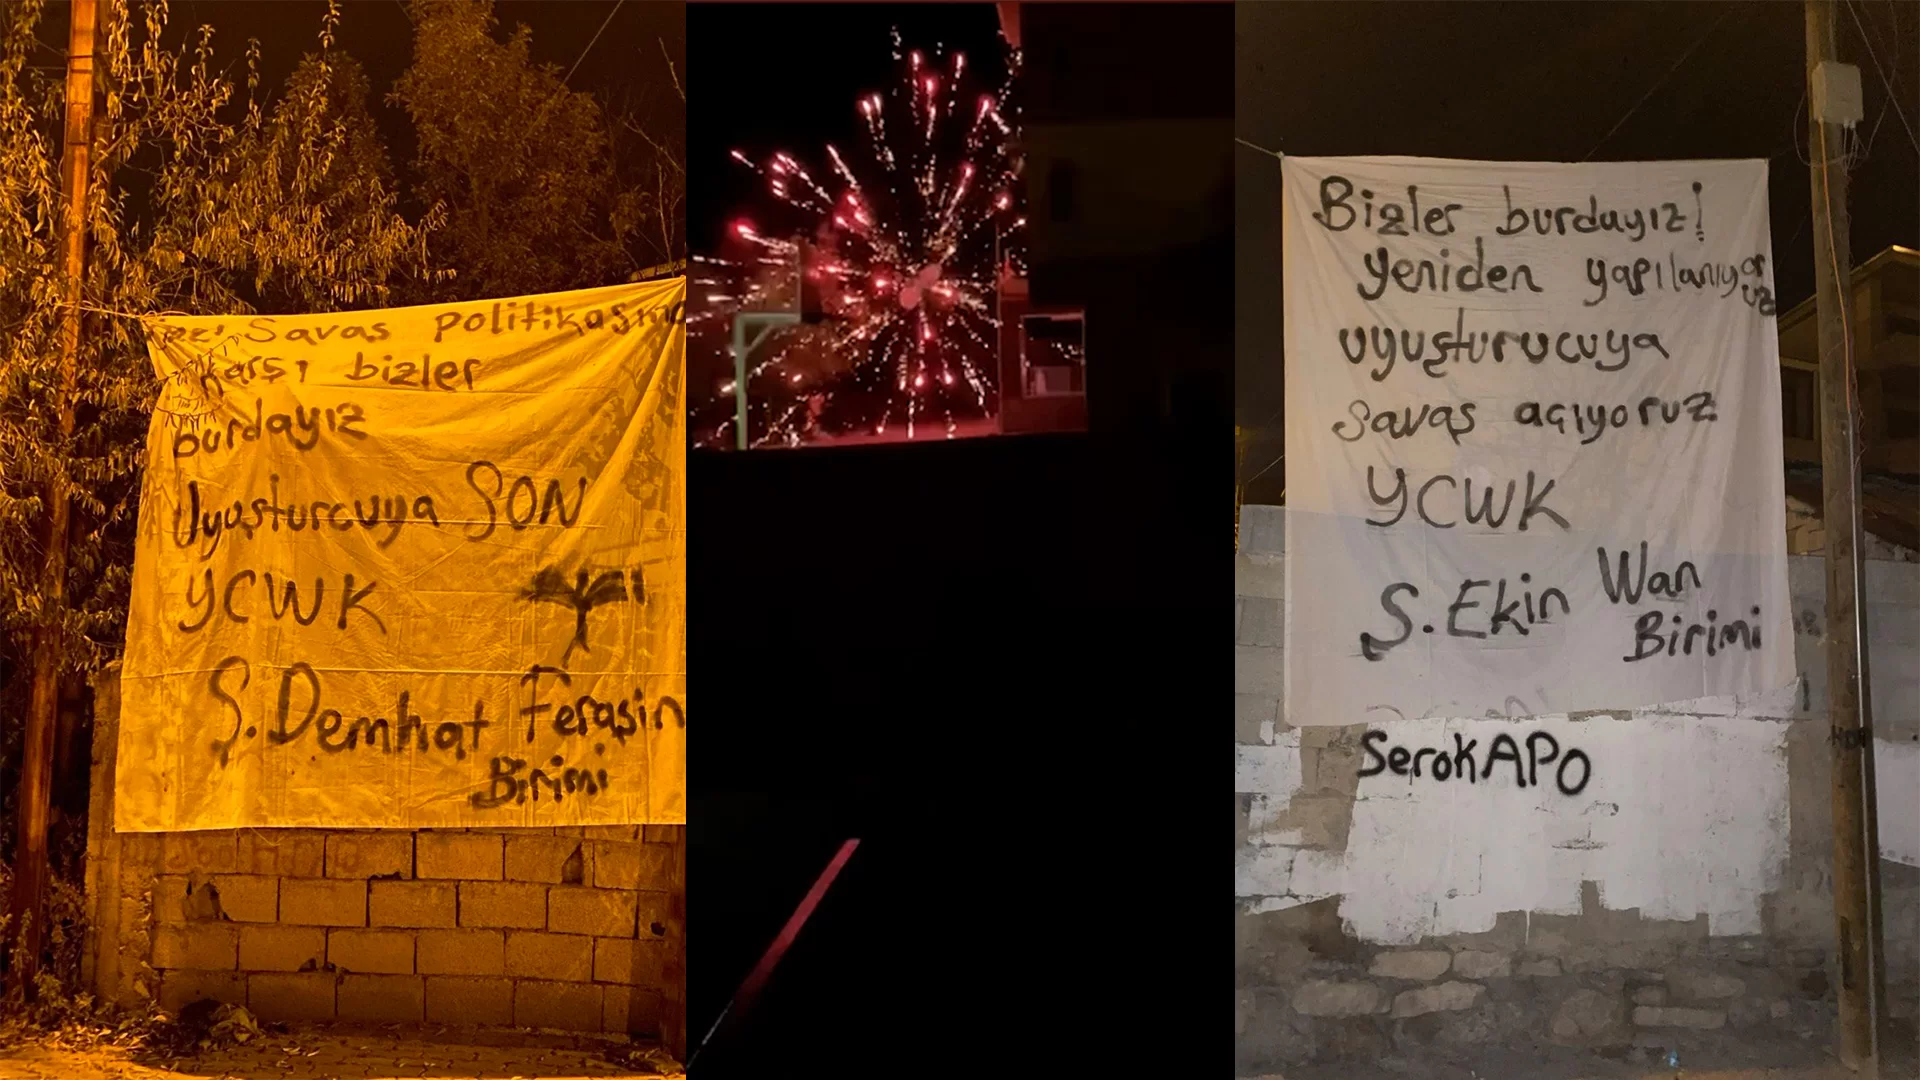 Savaş politikasına
karşı bizler
burdayız
Uyuşturcuya SON
YCWK
Ş. Demhat Feraşin
Birimi
Bizler burdayız!
yeniden yapılanıyoruz
uyuşturucuya
savaş açıyoruz
YCWK
Ş. Ekin Wan
Birimi
SerokAPO